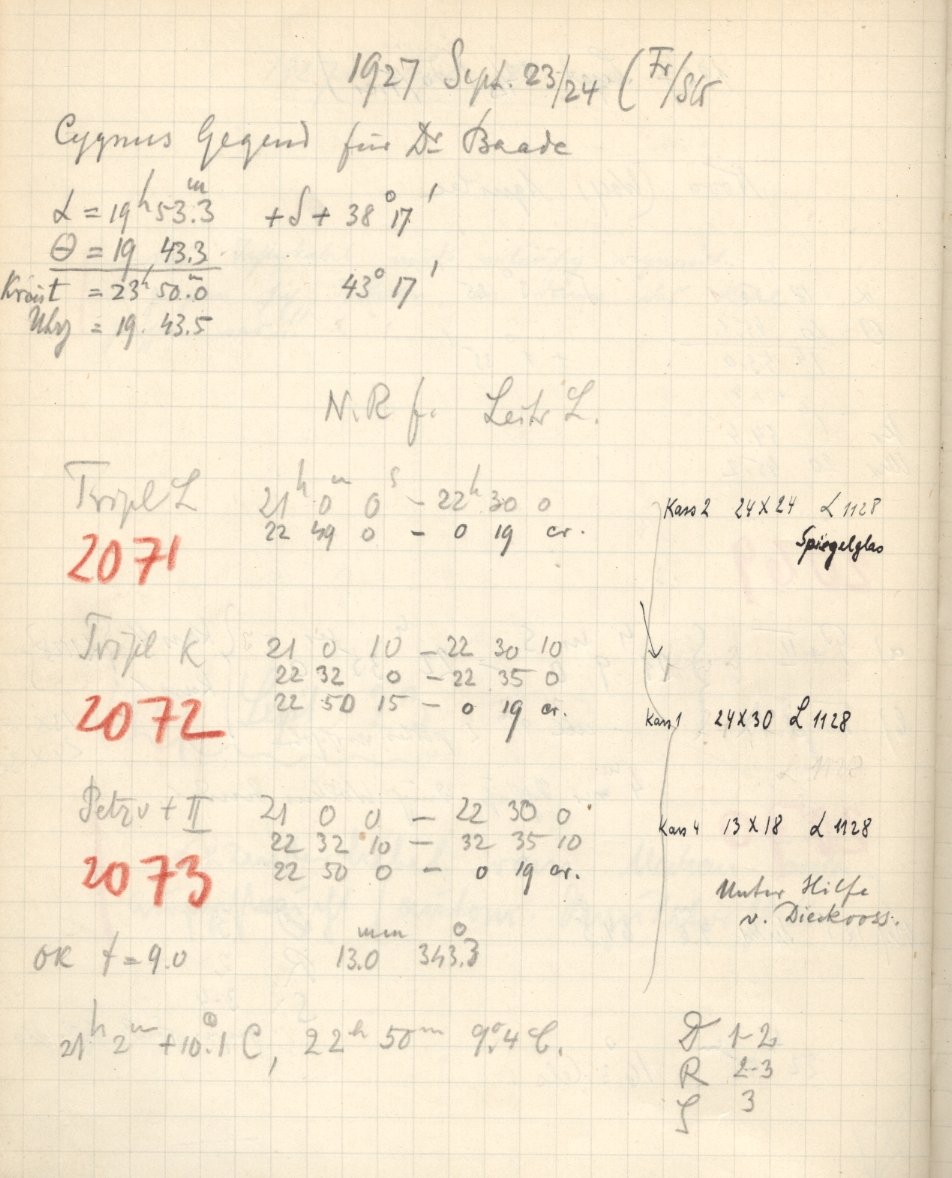 1927 Sept. 23/24 (Fr/
Cygnus Gegend für Dr Baade
α = 19h 53.3m + δ + 38° 17'
Θ = 19 43.3
t = 23h 50.0m 43° 17'
Uhr = 19. 43.5
N.R f. Leitr L.
Tripl L 21h 0m 0s - 22h 30 0
22 49 0 - 0 19 cr.
2071
Kass 2 24 X 24 L 1128
Spiegelglas
Tripl K 21 0 10 - 22 30 10
22 32 0 - 22 35 0
22 50 15 - 0 19 cr.
2072
Kass 1 24 X 30 L 1128
Petzv + II 21 0 0 - 22 30 0
22 32 10 - 32 35 10
22 50 0 - 0 19 cr.
2073
Kass 4 13 X 18 L 1128
Unter Hilfe
v. Dieckvoss.
OR f = 9.0 13.0mm 343.°3
21h 2m + 10.°1 C, 22h 50m 9.°4 C.
D 1-2
R 2-3
3